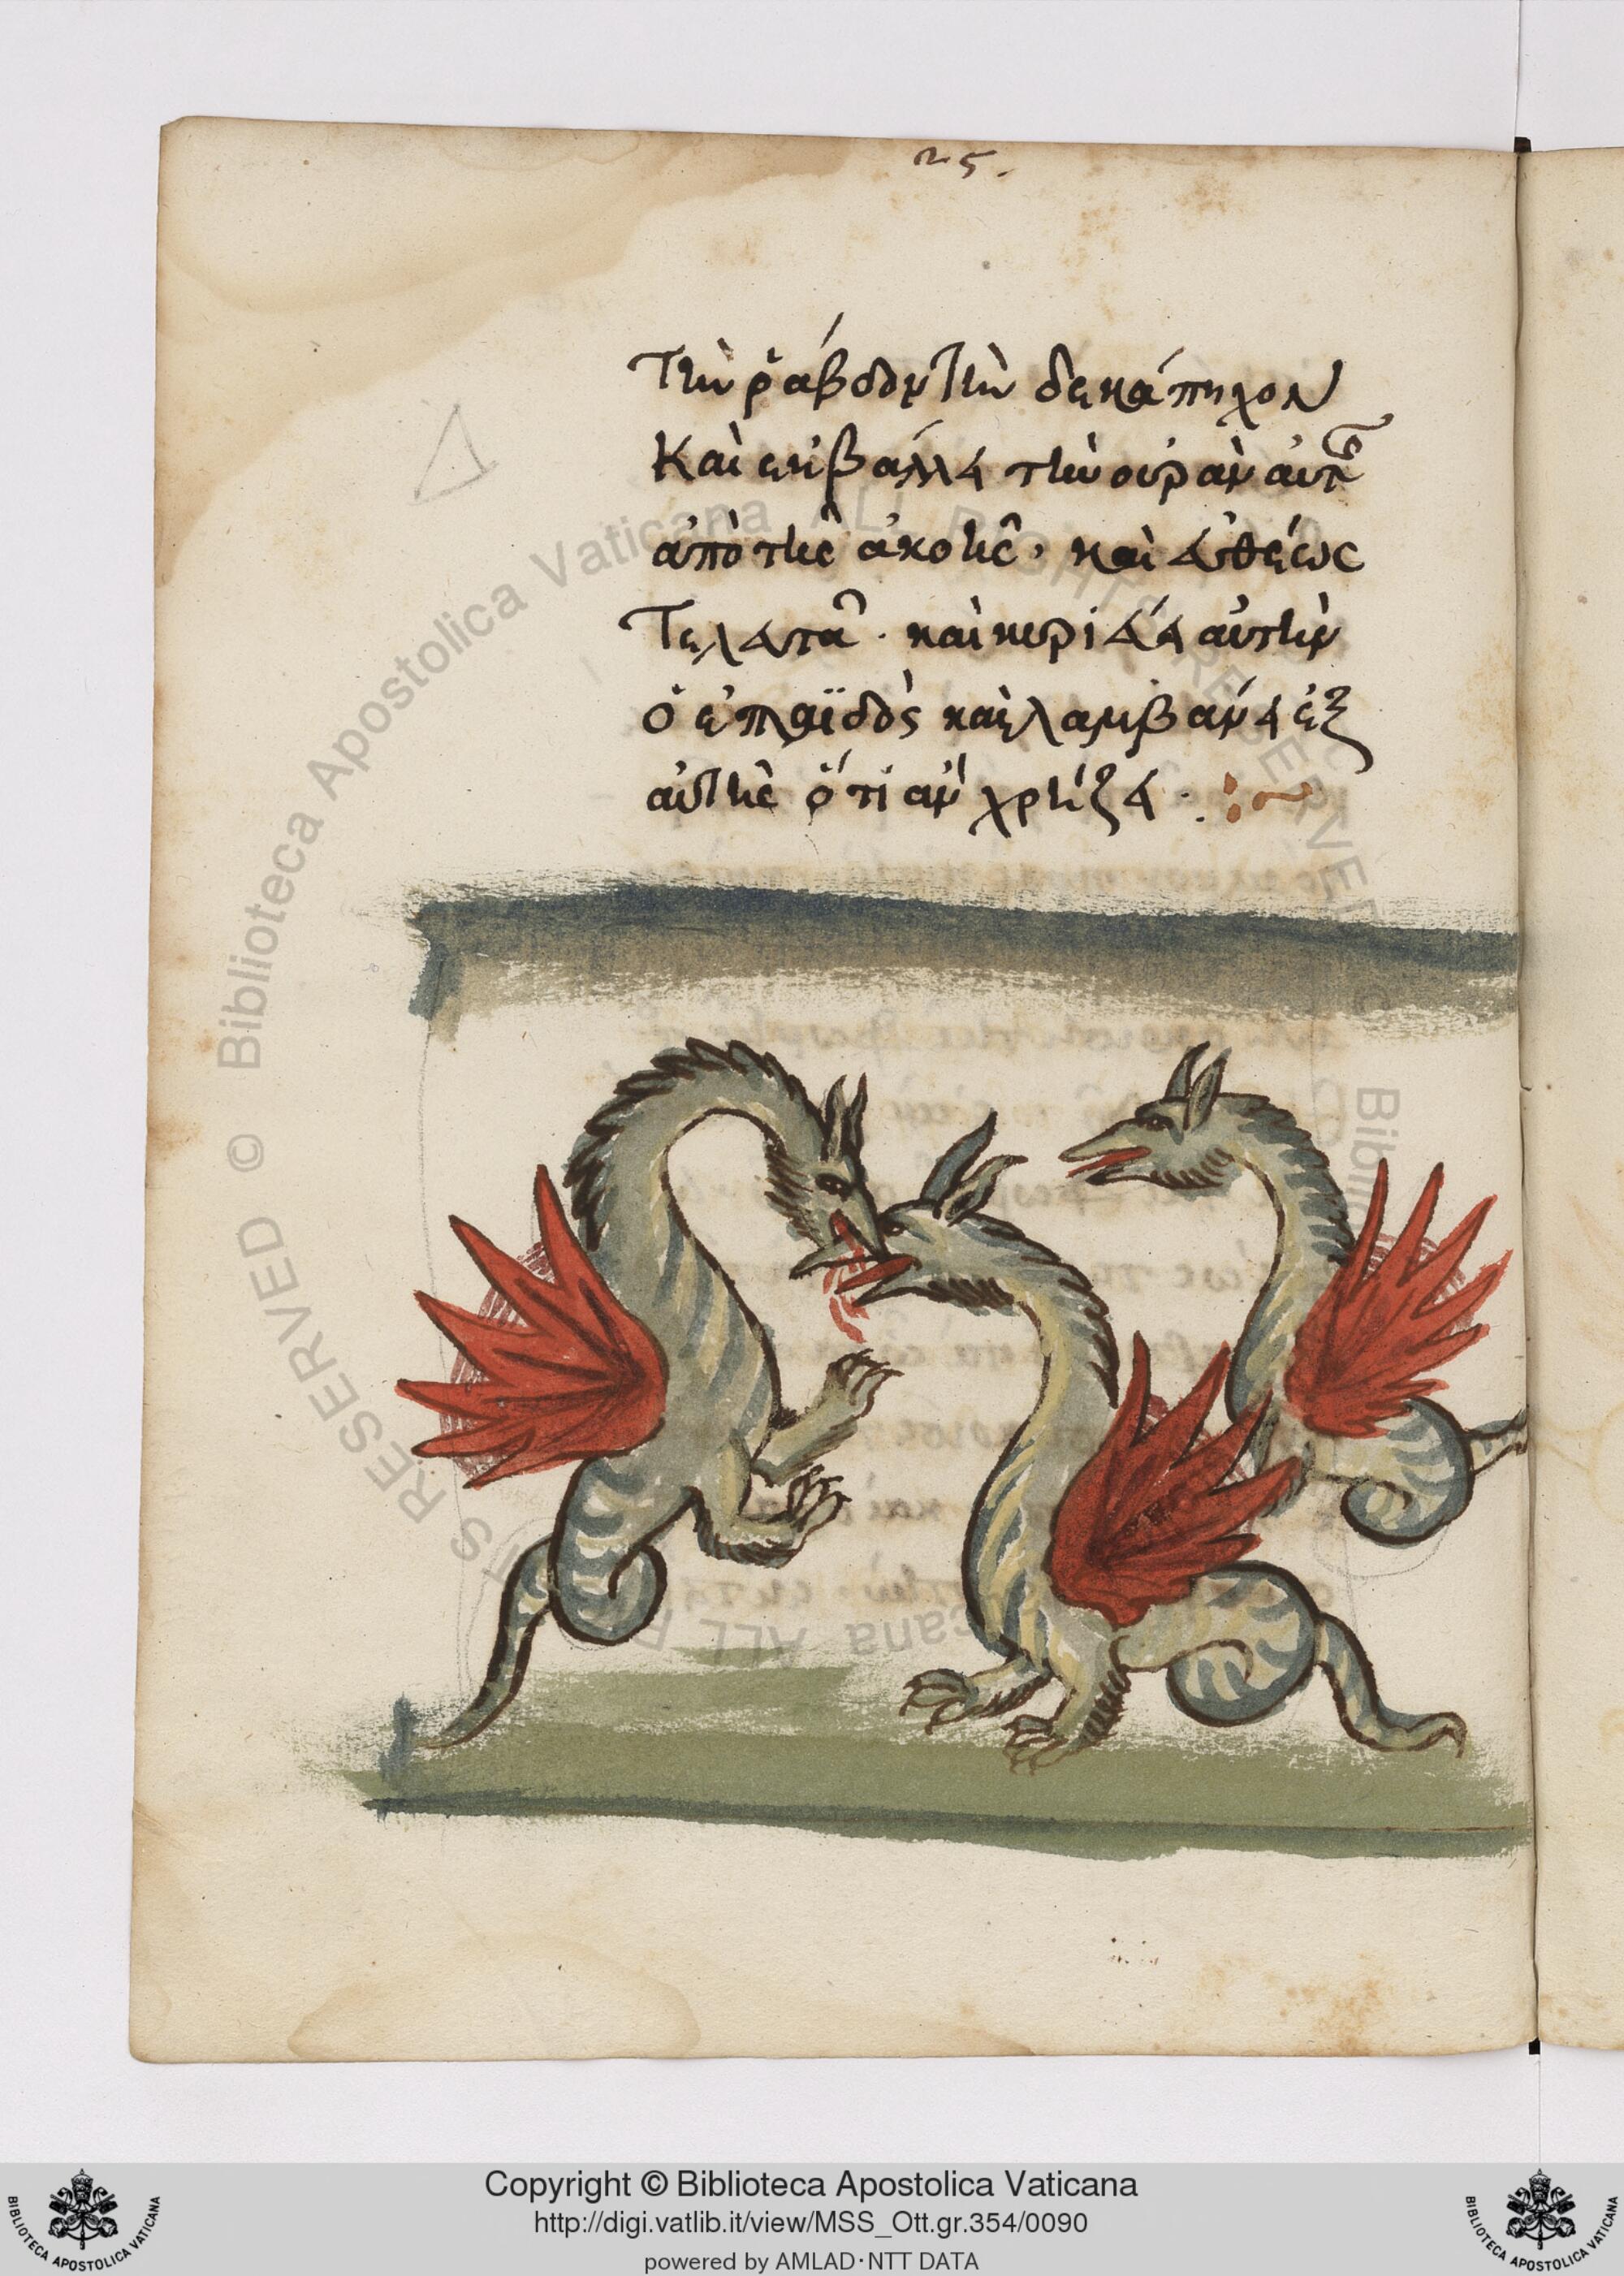 25.
τὴν ῥάβδον τὴν δεκάπηχον
Καὶ ἐκβάλλει τὴν οὐρὰν αὐτῆς
ἀπὸ τῆς ἀκοῆς· καὶ εὐθέως
τελευτᾶ· καὶ κυριεύει αὐτὴν
ὁ ἐπαϊδὸς καὶ λαμβάνει ἐξ
αὐτῆς ὅτι ἂν χρήζει
© Biblioteca Apostolica Vaticana ALL RIGHTS RESERVED
Copyright © Biblioteca Apostolica Vaticana
http://digi.vatlib.it/view/MSS_Ott.gr.354/0090
powered by AMLAD·NTT DATA
BIBLIOTECA APOSTOLICA VATICANA
BIBLIOTECA APOSTOLICA VATICANA